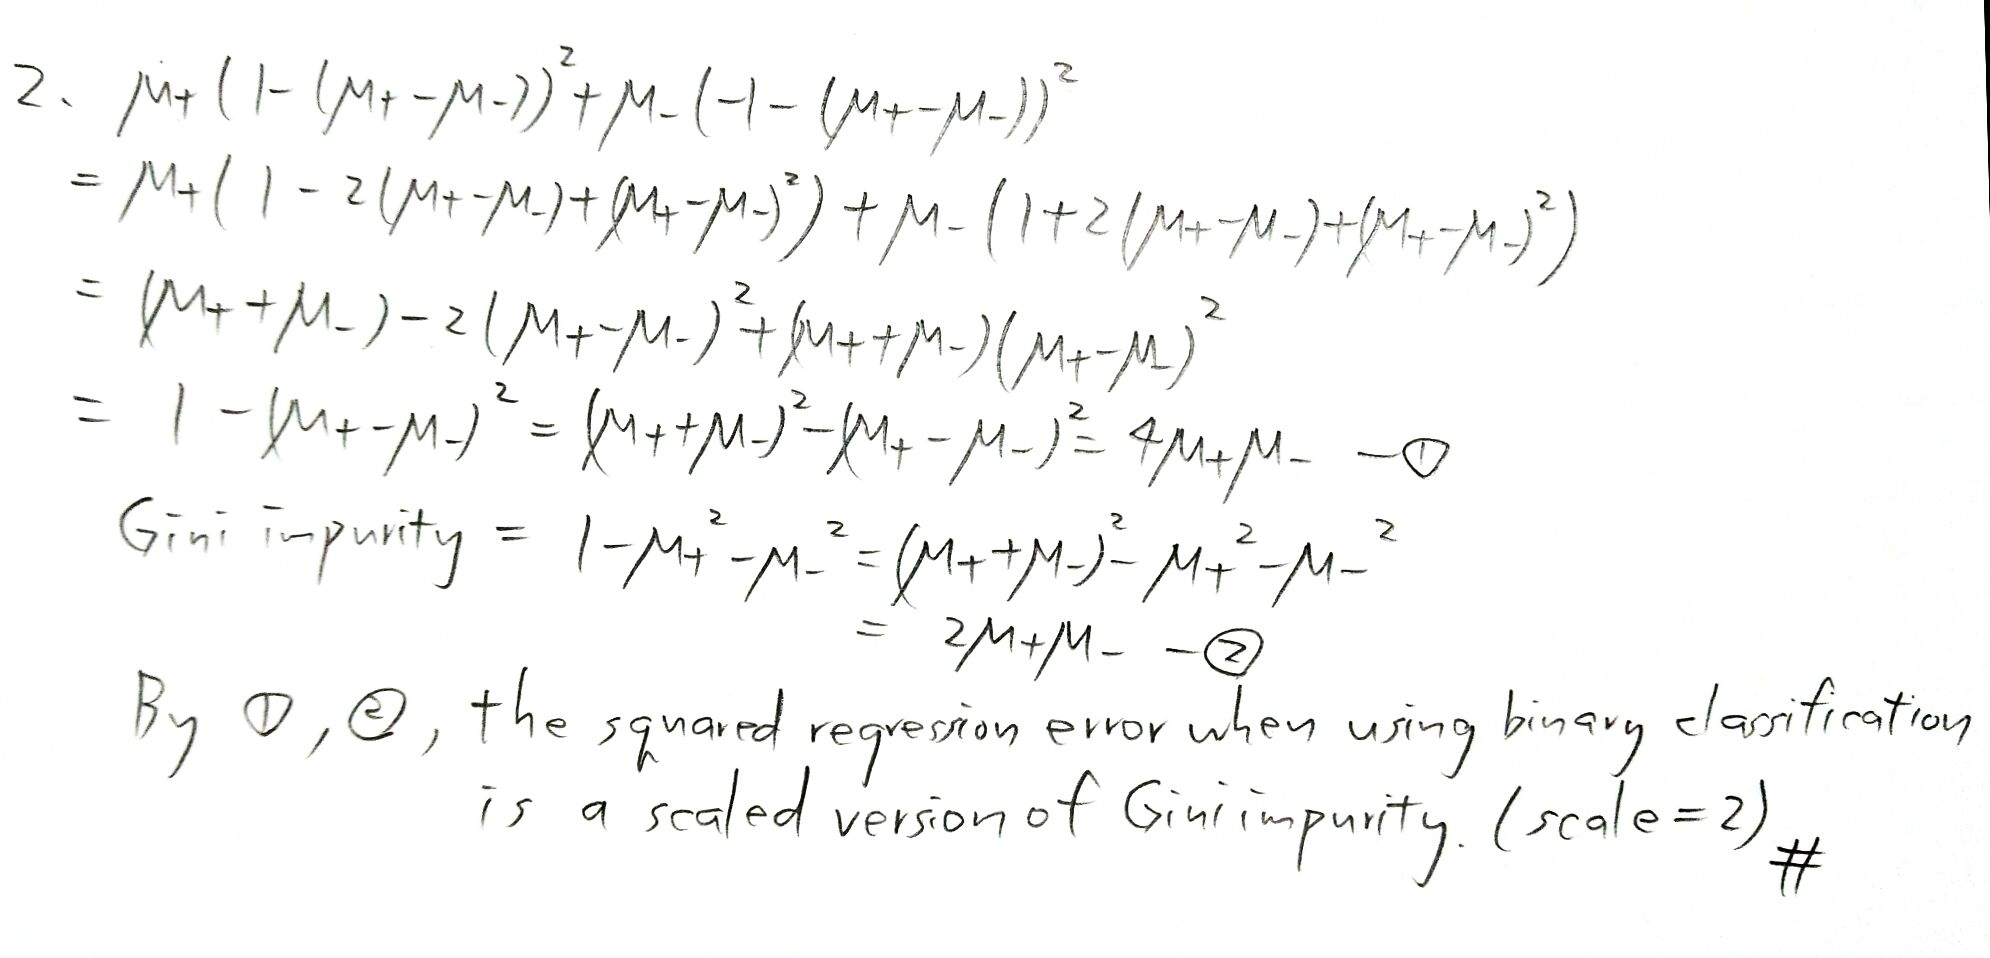 2. μ₊(1-(μ₊-μ₋))²+μ₋(-1-(μ₊-μ₋))²
= μ₊(1-2(μ₊-μ₋)+(μ₊-μ₋)²)+μ₋(1+2(μ₊-μ₋)+(μ₊-μ₋)²)
= (μ₊+μ₋)-2(μ₊-μ₋)²+(μ₊+μ₋)(μ₊-μ₋)²
= 1-(μ₊-μ₋)²=(μ₊+μ₋)²-(μ₊-μ₋)²=4μ₊μ₋ -①
Gini impurity = 1-μ₊²-μ₋²=(μ₊+μ₋)²-μ₊²-μ₋²
= 2μ₊μ₋ -②
By ①,②, the squared regression error when using binary classification
is a scaled version of Gini impurity. (scale=2) #